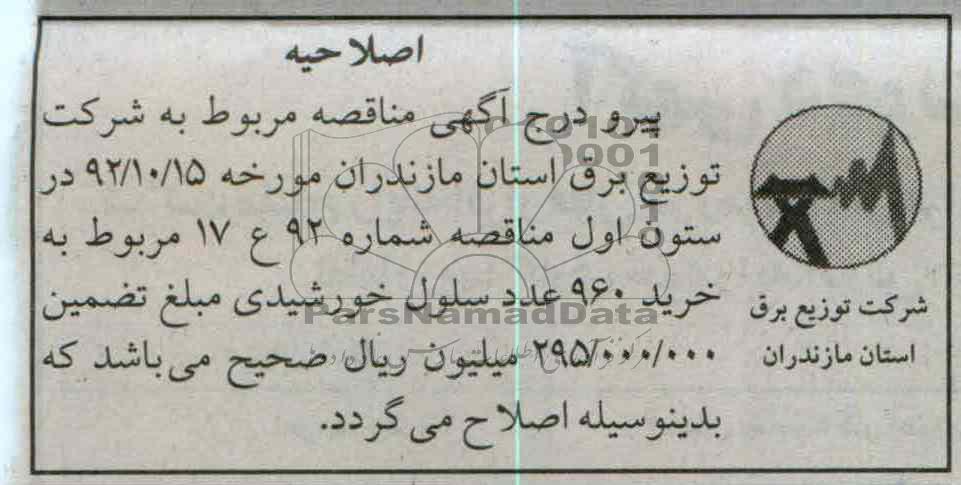 اصلاحیه
پیرو درج آگهی مناقصه مربوط به شرکت
توزیع برق استان مازندران مورخه ۹۲/۱۰/۱۵ در
ستون اول مناقصه شماره ۹۲ ع ۱۷ مربوط به
خرید ۹۶۰ عدد سلول خورشیدی مبلغ تضمین
۲۹۵/۰۰۰/۰۰۰ میلیون ریال صحیح می باشد که
بدینوسیله اصلاح می گردد.
شرکت توزیع برق
استان مازندران
ParsNamadData